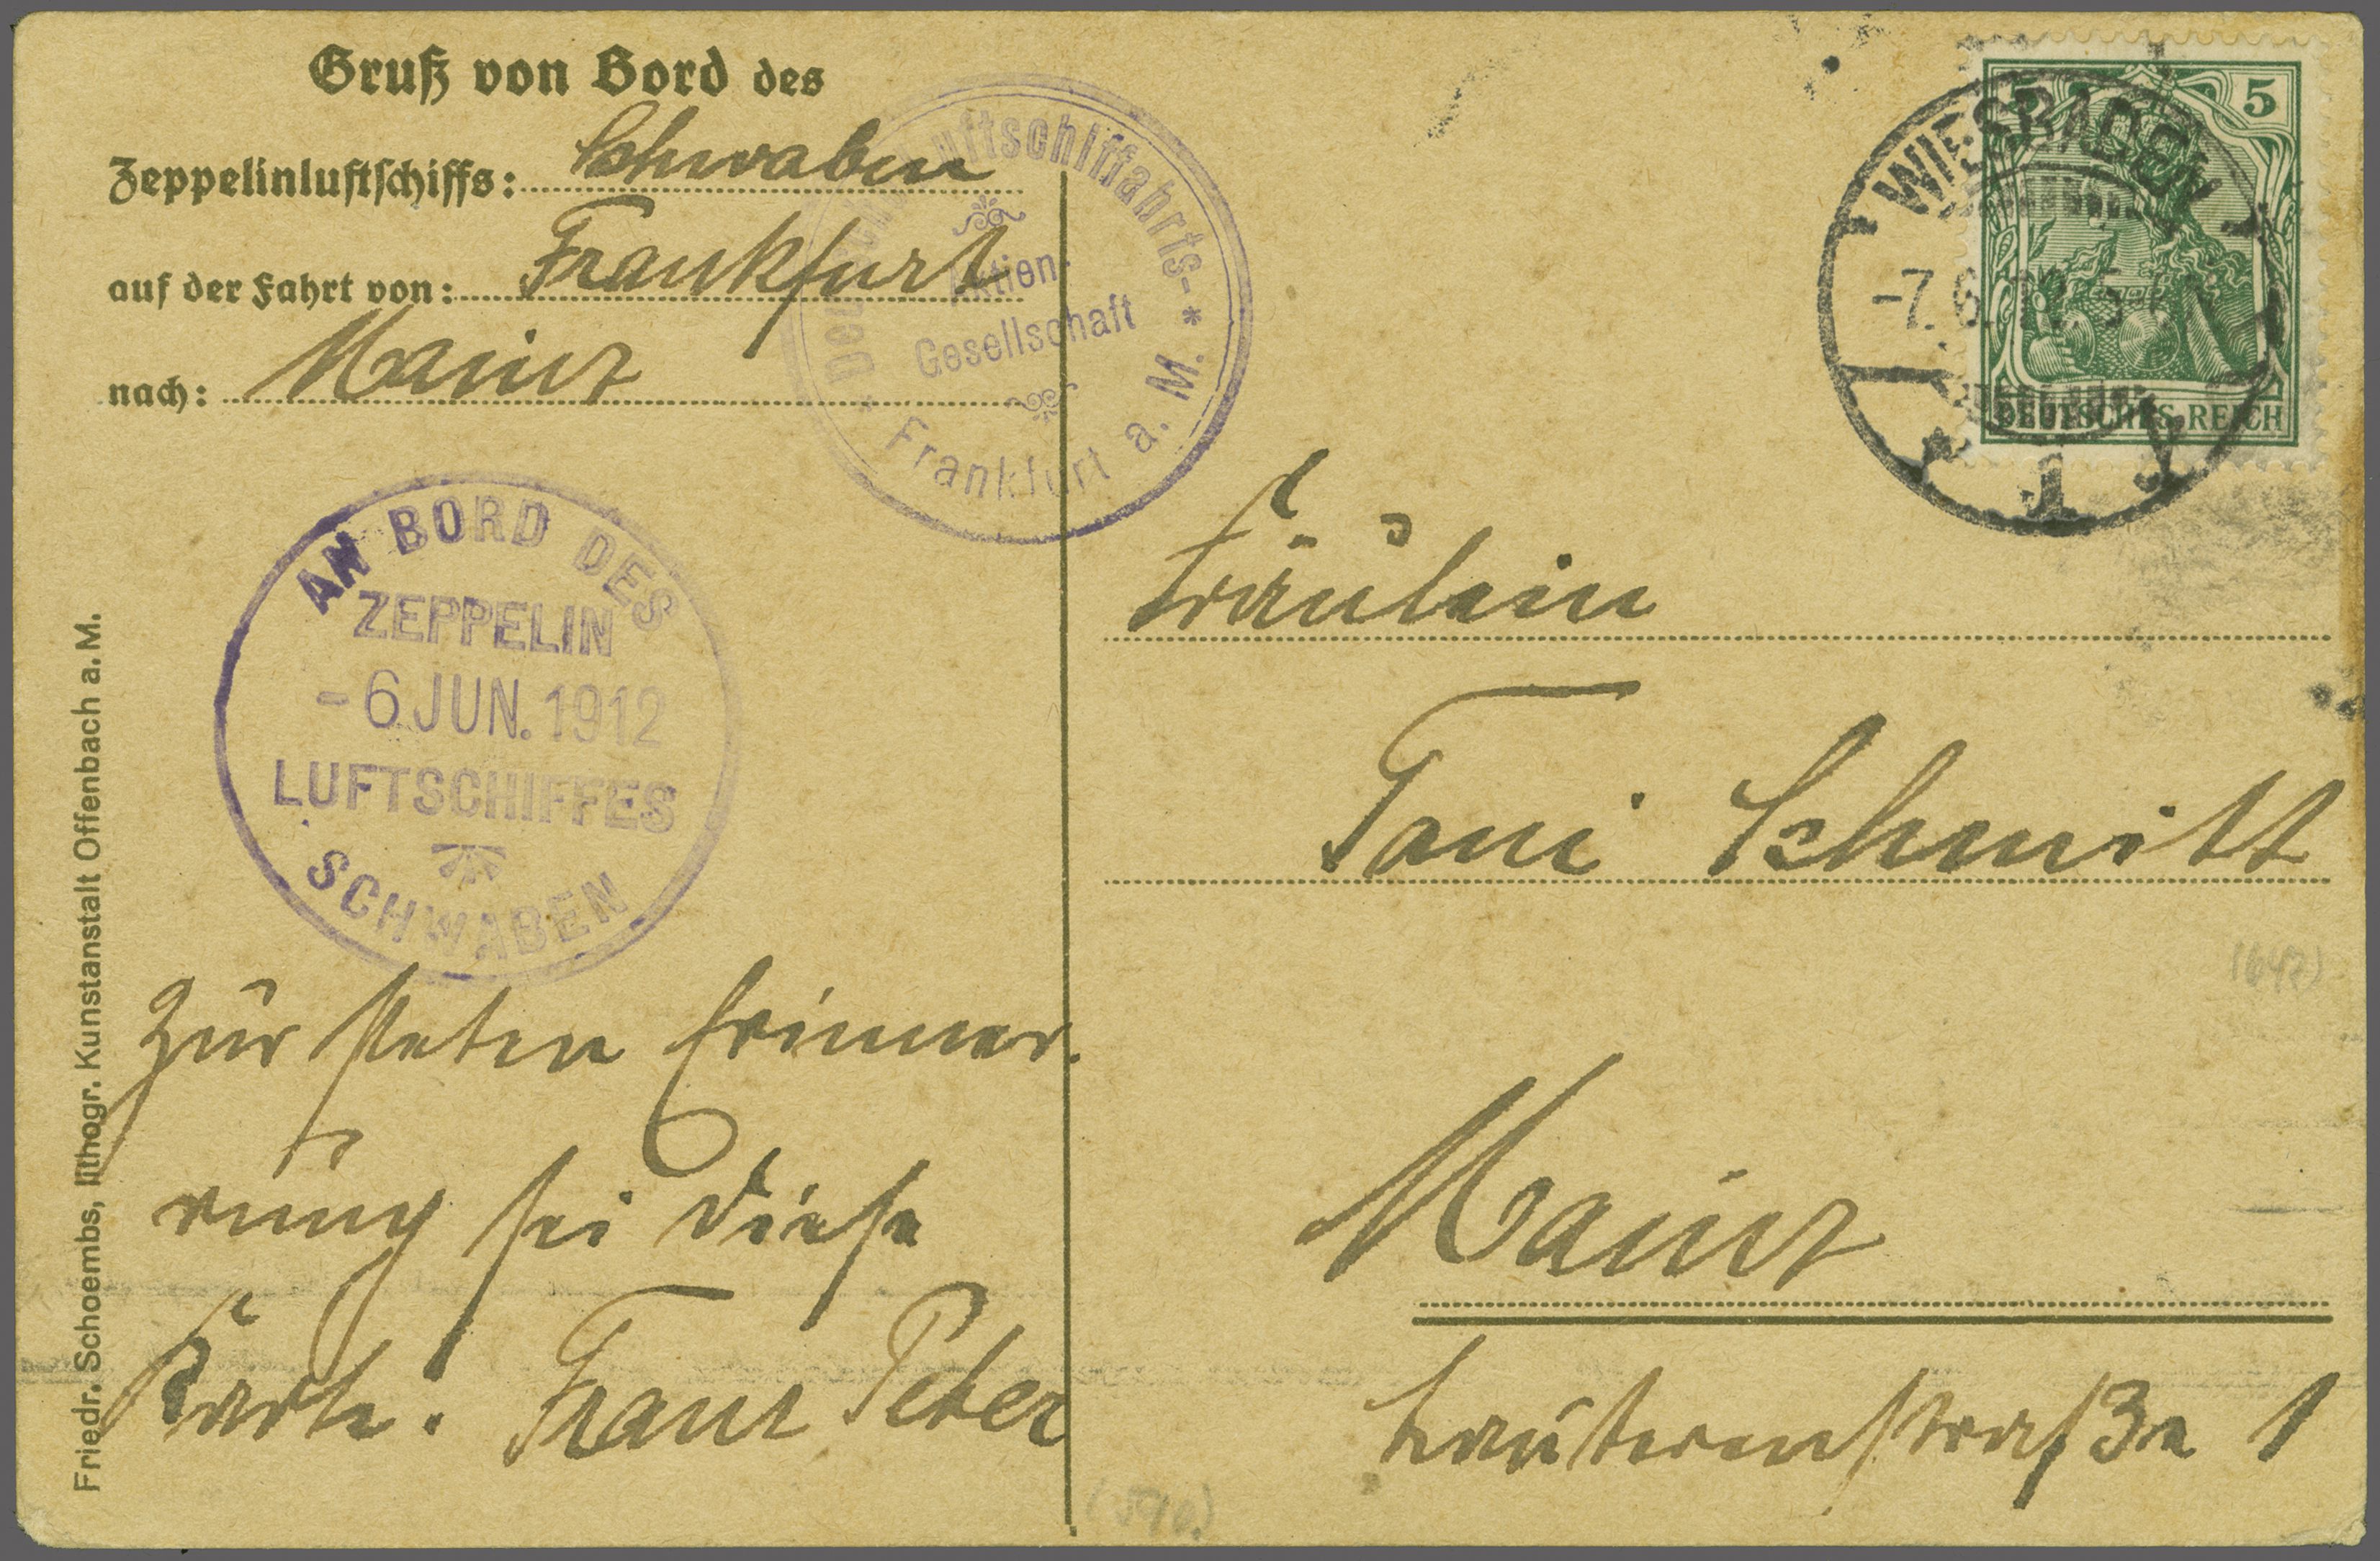 Gruß von Bord des
Zeppelinluftschiffs: Schwaben
auf der Fahrt von: Frankfurt
nach: Mainz
Deutsche Luftschiffahrts-
Aktien-
Gesellschaft
* Frankfurt a. M. *
AN BORD DES
ZEPPELIN
-6 JUN. 1912
LUFTSCHIFFES
SCHWABEN
Zur steten Erinner.
rung sei diese
Karte! Franz Peter
Friedr. Schoembs, lithogr. Kunstanstalt Offenbach a. M.
WIESBADEN
-7.6.12. 5-
* 1 *
5
DEUTSCHES REICH
Fräulein
Toni Schmitt
Mainz
1